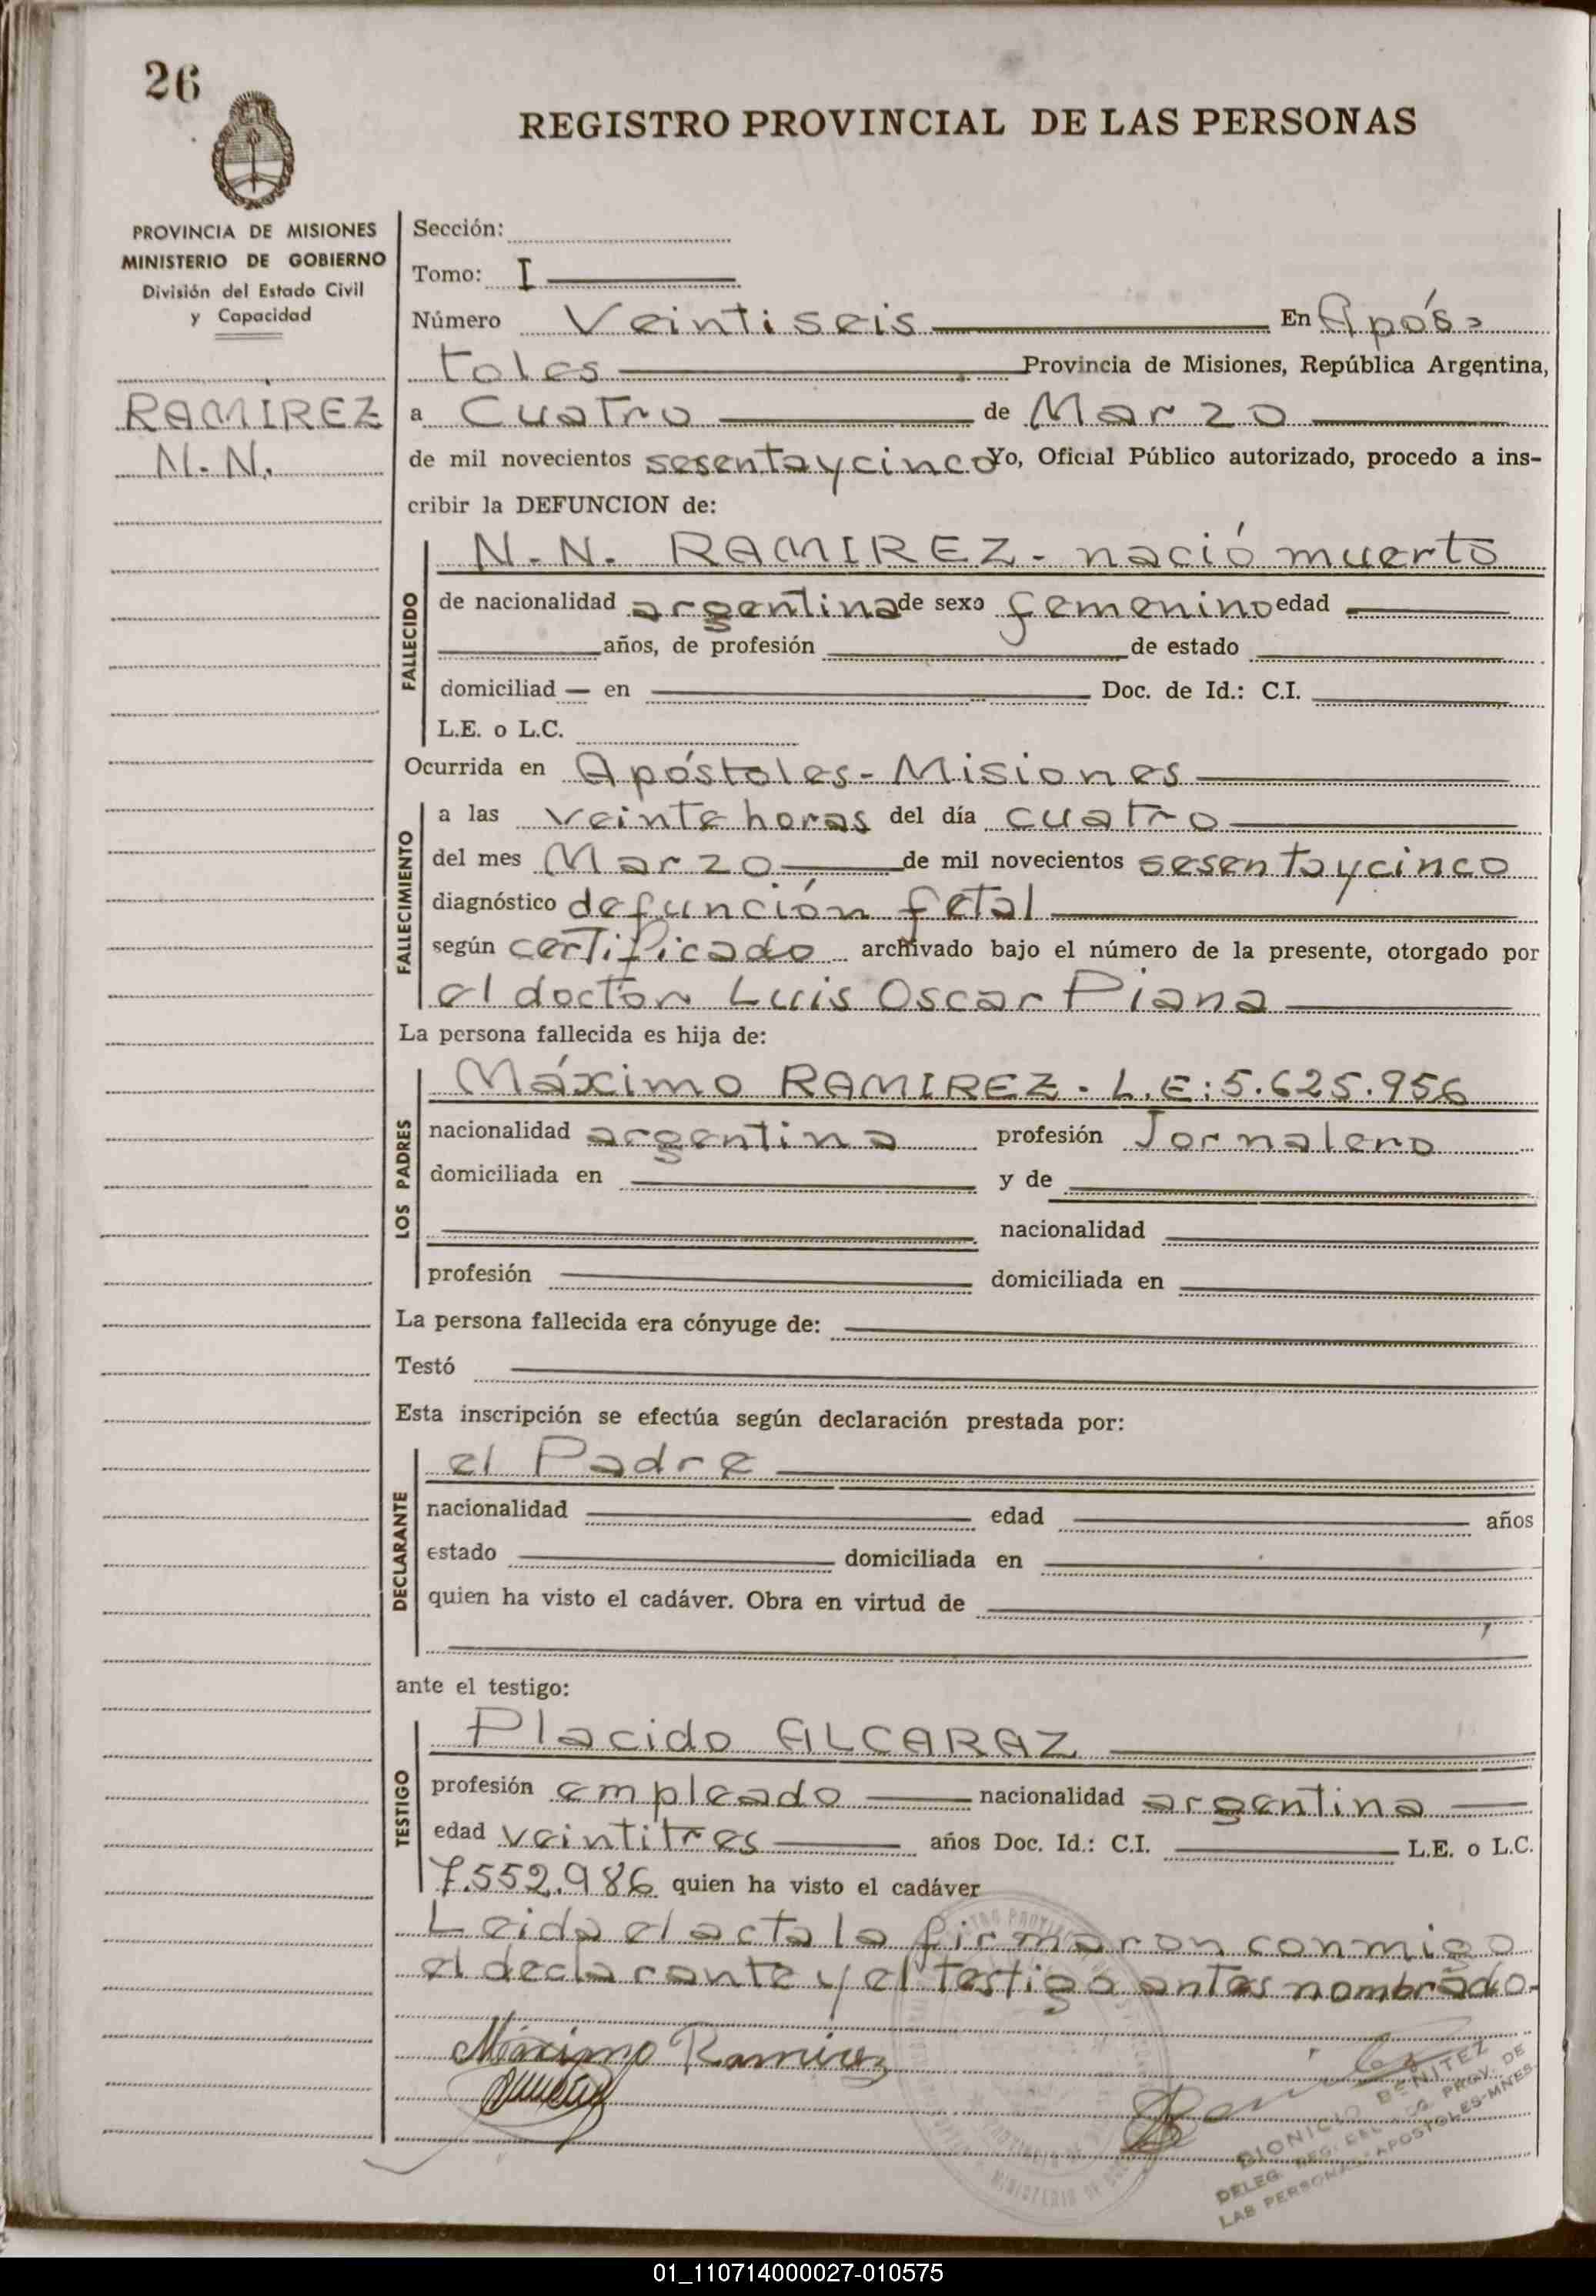 26
REGISTRO PROVINCIAL DE LAS PERSONAS
PROVINCIA DE MISIONES
MINISTERIO DE GOBIERNO
División del Estado Civil
y Capacidad
RAMÍREZ
N. N.
Sección:
Tomo: I
Número Veintiseis En Após-
toles Provincia de Misiones, República Argentina,
a Cuatro de Marzo
de mil novecientos sesentaycinco Yo, Oficial Público autorizado, procedo a ins-
cribir la DEFUNCION de:
FALLECIDO
N. N. RAMIREZ - nació muerto
de nacionalidad argentina de sexo femenino edad
años, de profesión de estado
domiciliad — en Doc. de Id.: C.I.
L.E. o L.C.
Ocurrida en Apóstoles - Misiones
FALLECIMIENTO
a las veinte horas del día cuatro
del mes Marzo de mil novecientos sesentaycinco
diagnóstico defunción fetal
según certificado archivado bajo el número de la presente, otorgado por
el doctor Luis Oscar Piana
La persona fallecida es hija de:
LOS PADRES
Máximo RAMIREZ - L.E: 5.625.956
nacionalidad argentina profesión Jornalero
domiciliada en y de
nacionalidad
profesión domiciliada en
La persona fallecida era cónyuge de:
Testó
Esta inscripción se efectúa según declaración prestada por:
DECLARANTE
el Padre
nacionalidad edad años
estado domiciliada en
quien ha visto el cadáver. Obra en virtud de
ante el testigo:
TESTIGO
Placido ALCARAZ
profesión empleado nacionalidad argentina
edad veintitres años Doc. Id.: C.I. L.E. o L.C.
7.552.986 quien ha visto el cadáver
Leida el acta la firmaron conmigo
el declarante y el testigo antes nombrado.
Máximo Ramirez
DIONICIO BENITEZ
DELEG. REG. DEL PROV. DE
LAS PERSONAS APOSTOLES-MNES
01_110714000027-010575